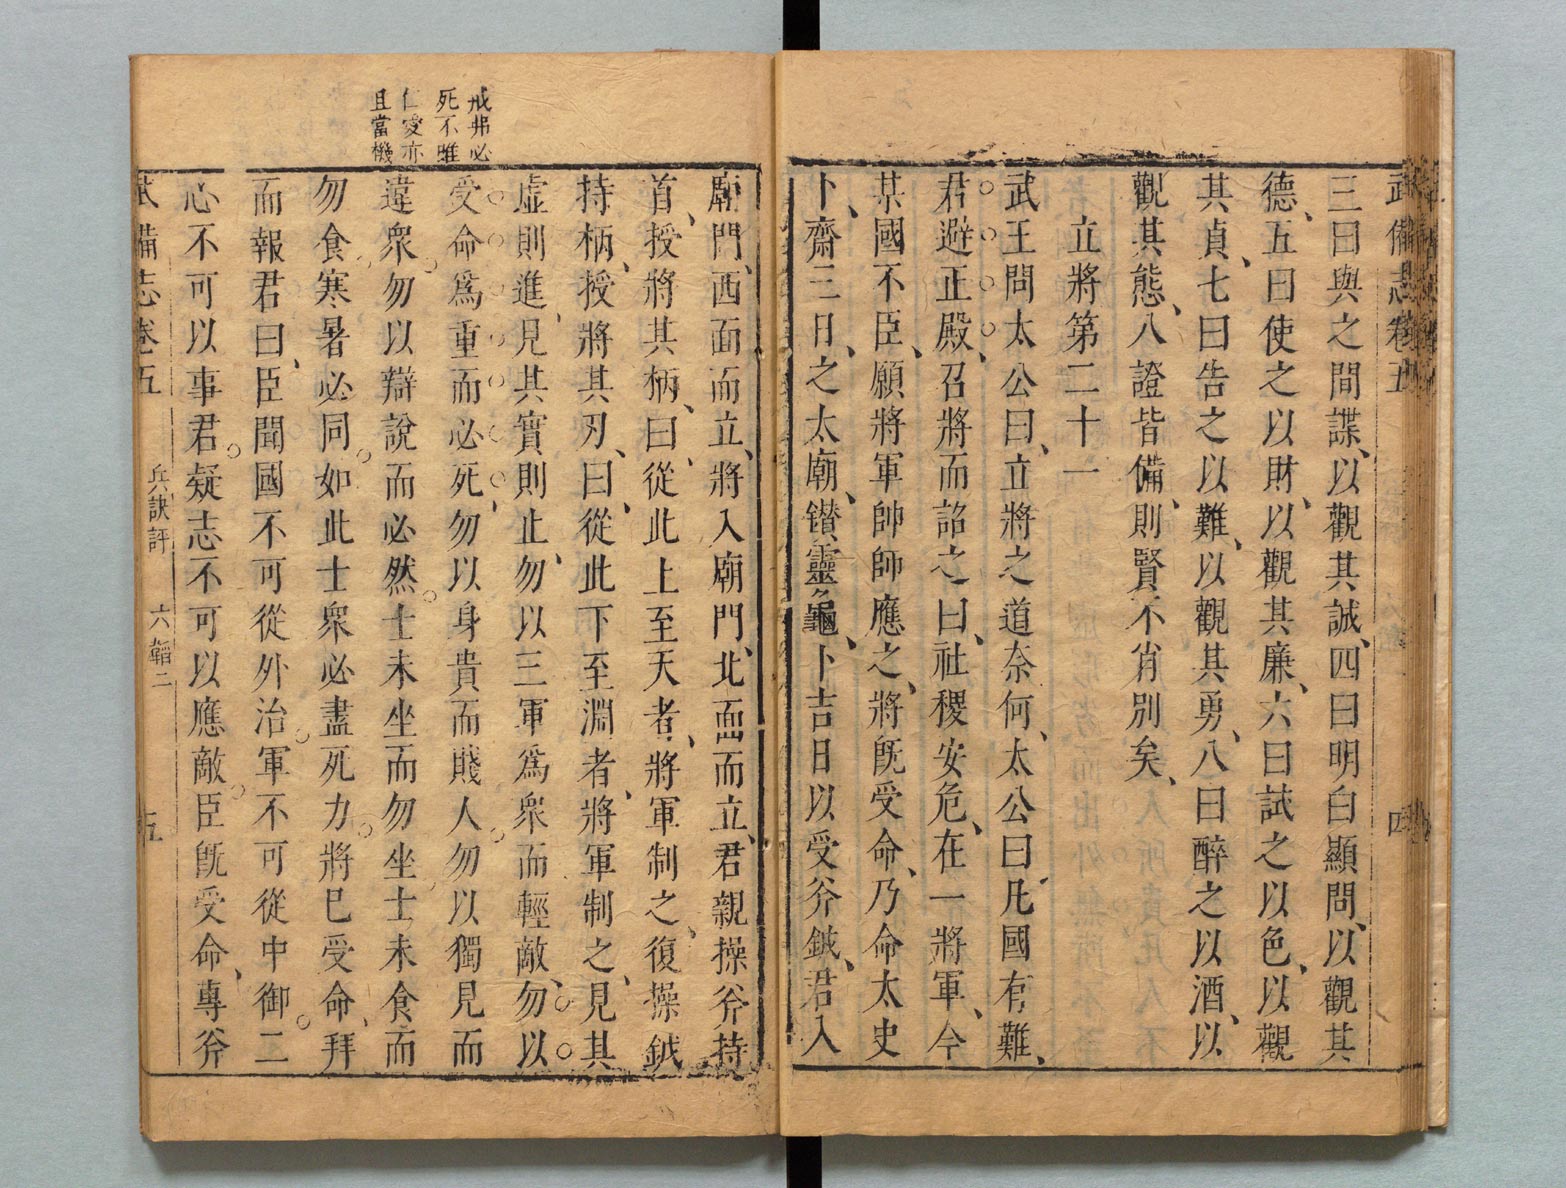 武備志卷五 四
三曰與之間諜以觀其誠四曰明白顯問以觀其
德五曰使之以財以觀其廉六曰試之以色以觀
其貞七曰告之以難以觀其勇八曰醉之以酒以
觀其態八證皆備則賢不肖別矣
立將第二十一
武王問太公曰立將之道奈何太公曰凡國有難
君避正殿召將而詔之曰社稷安危在一將軍今
某國不臣願將軍帥師應之將既受命乃命太史
卜齋三日之太廟鑚靈龜卜吉日以受斧鉞君入
廟門西面而立將入廟門北面而立君親操斧持
首授將其柄曰從此上至天者將軍制之復操鉞
持柄授將其刃曰從此下至淵者將軍制之見其
虛則進見其實則止勿以三軍爲衆而輕敵勿以
受命爲重而必死勿以身貴而賤人勿以獨見而
違衆勿以辯說而必然士未坐而勿坐士未食而
勿食寒暑必同如此士衆必盡死力將已受命拜
而報君曰臣聞國不可從外治軍不可從中御二
心不可以事君疑志不可以應敵臣既受命專斧
戒弗必
死不雖
仁愛亦
且當機
武備志卷五 兵訣評 六韜二 五